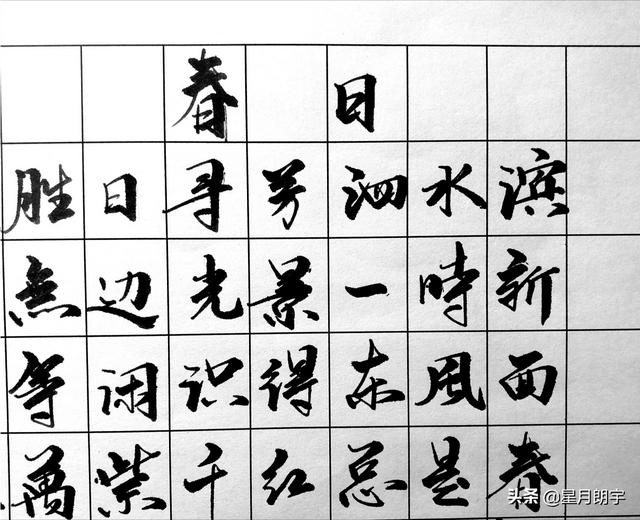 春日
胜日寻芳泗水滨
無边光景一時新
等闲识得东风面
萬紫千红总是春
头条 @星月朗宇